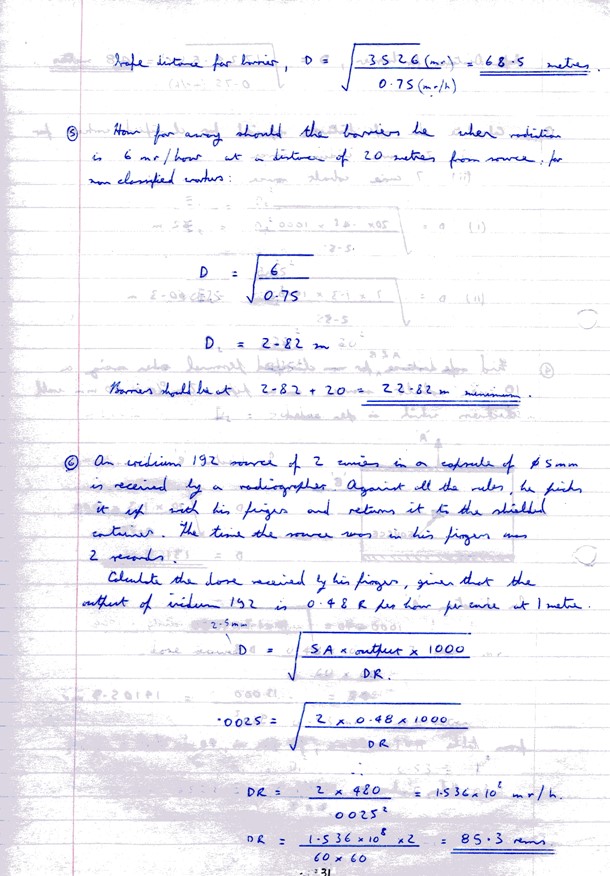 Safe distance for barrier, D = √ 3526 (mr) / 0.75 (mr/h) = 68.5 metres.
⑤ How far away should the barriers be when radiation
is 6 mr/hour at a distance of 20 metres from source, for
non classified workers:
D = √ 6 / 0.75
D, = 2-82 m
Barriers should be at 2-82 + 20 = 22.82 m minimum.
⑥ An iridium 192 source of 2 curies in a capsule of ø 5mm
is received by a radiographer. Against all the rules, he picks
it up with his fingers and returns it to the shielded
container. The time the source was in his fingers was
2 seconds.
Calculate the dose received by his fingers, given that the
output of iridium 192 is 0.48 R per hour per curie at 1 metre.
2.5mm
D = √ SA x output x 1000 / DR.
.0025 = √ 2 x 0.48 x 1000 / DR
∴
DR = 2 x 480 / 0025² = 1.536 x 10⁸ mr/h.
DR = 1.536 x 10⁸ x 2 / 60 x 60 = 85.3 rems.
31